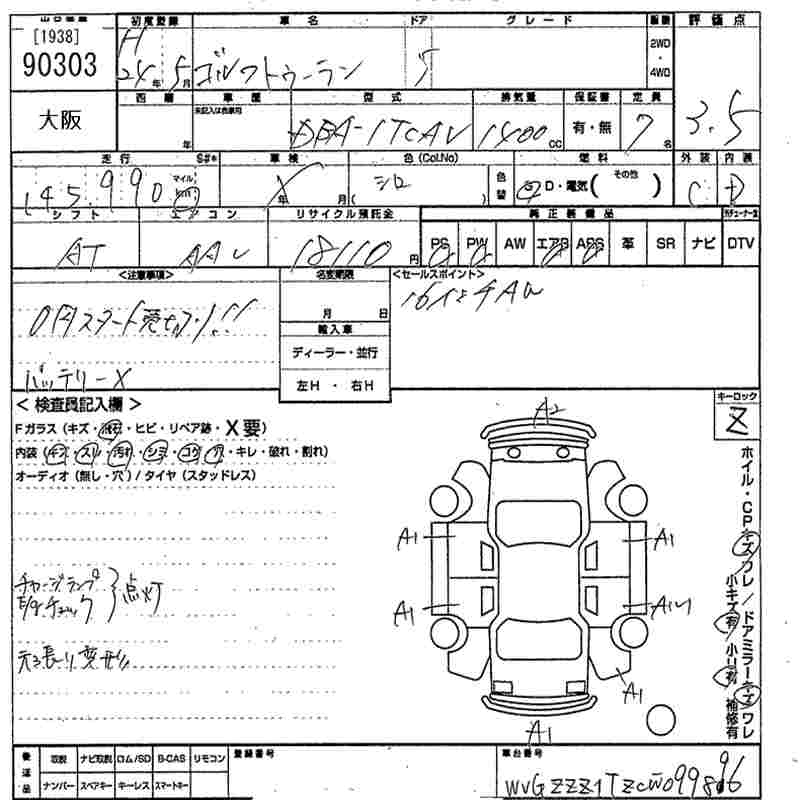 初度登録 車名 ドア グレード 駆動 評価点
[1938]
90303
H 24年 5月 ゴルフトゥーラン 5
2WD
・
4WD
大阪
西暦 車歴 型式 排気量 保証書 定員
未記入は自家用
年 DBA-1TCAV 1400cc 有・無 7名 3.5
走行 S#* 車検 色(Col.No) 燃料 外装 内装
145,990 マイル km X 年 月 シロ ( ) 色替 G・D・電気( その他 ) C D
シフト エアコン リサイクル預託金 純正装備品
AT AAC 18110円 PS PW AW エアB ABS 革 SR ナビ DTV
<注意事項> 名変期限 <セールスポイント>
月 日
0円スタート売切り!!
バッテリーX
輸入車
ディーラー・並行
左H ・ 右H
< 検査員記入欄 >
Fガラス (キズ・飛石・ヒビ・リペア跡・X要)
内装 (キズ・スレ・汚れ・シミ・コゲ・穴・キレ・破れ・割れ)
オーディオ (無し・穴) / タイヤ (スタッドレス)
チャージランプ
E/gチェック 点灯
天張り変形
キーロック
A2
A1 A1
A1
A1
A1
ホイル・CPキズワレ/ドアミラーキズワレ
小キズ有 小凹有 補修有
後送品 取説 ナビ取説 ロム/SD B-CAS リモコン 登録番号 車台番号
ナンバー スペアキー キーレス スマートキー